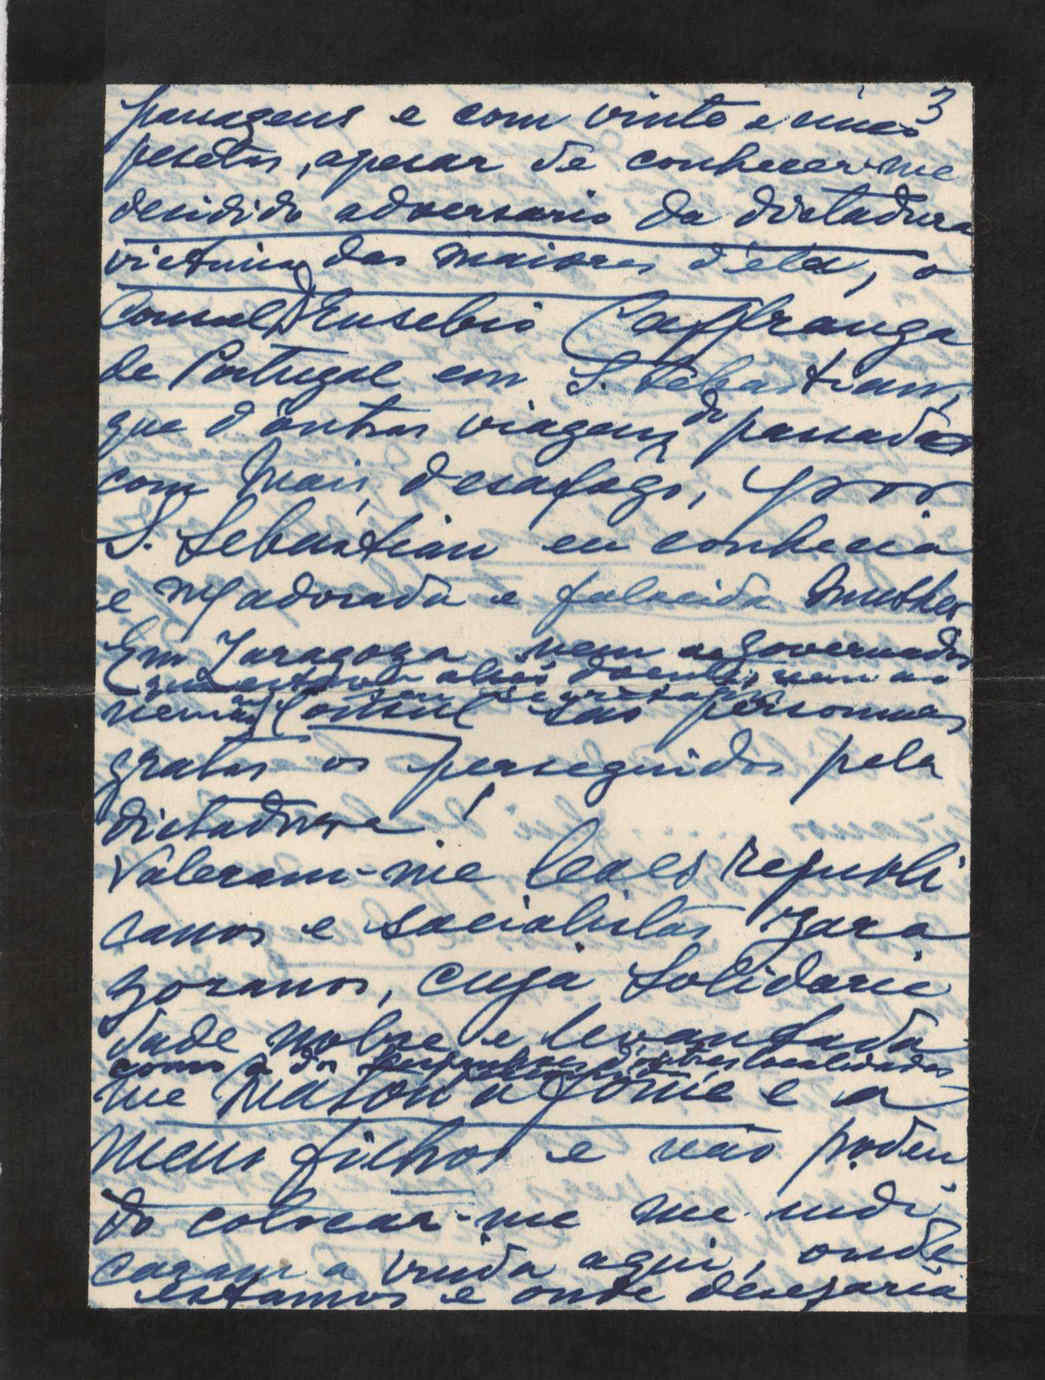 3
passagens e com vinte e cinco
pesetas, apesar de conhecer-me
decidido adversario da dictadura
victima das maiores d'ela, o
Consul D. Eusebio Caffranga
de Portugal em S. Sebastian,
que d'outras viagens do passado
com mais desafogo, por
S. Sebastian eu conhecia
e m/ adorada e falecida mulher
Em Zaragoza nem ao governador
nem ao
nem Consul são personas
gratas os perseguidos pela
dictadura!
Valeram-me leaes republi
canos e socialistas zara
gozanos, cuja solidarie
dade nobre e levantada
como a dos d'outras localidades
me matou a fome e a
meus filhos e não poden
do colocar-me me indi
caram a vinda aqui, onde
estamos e onde desejaria